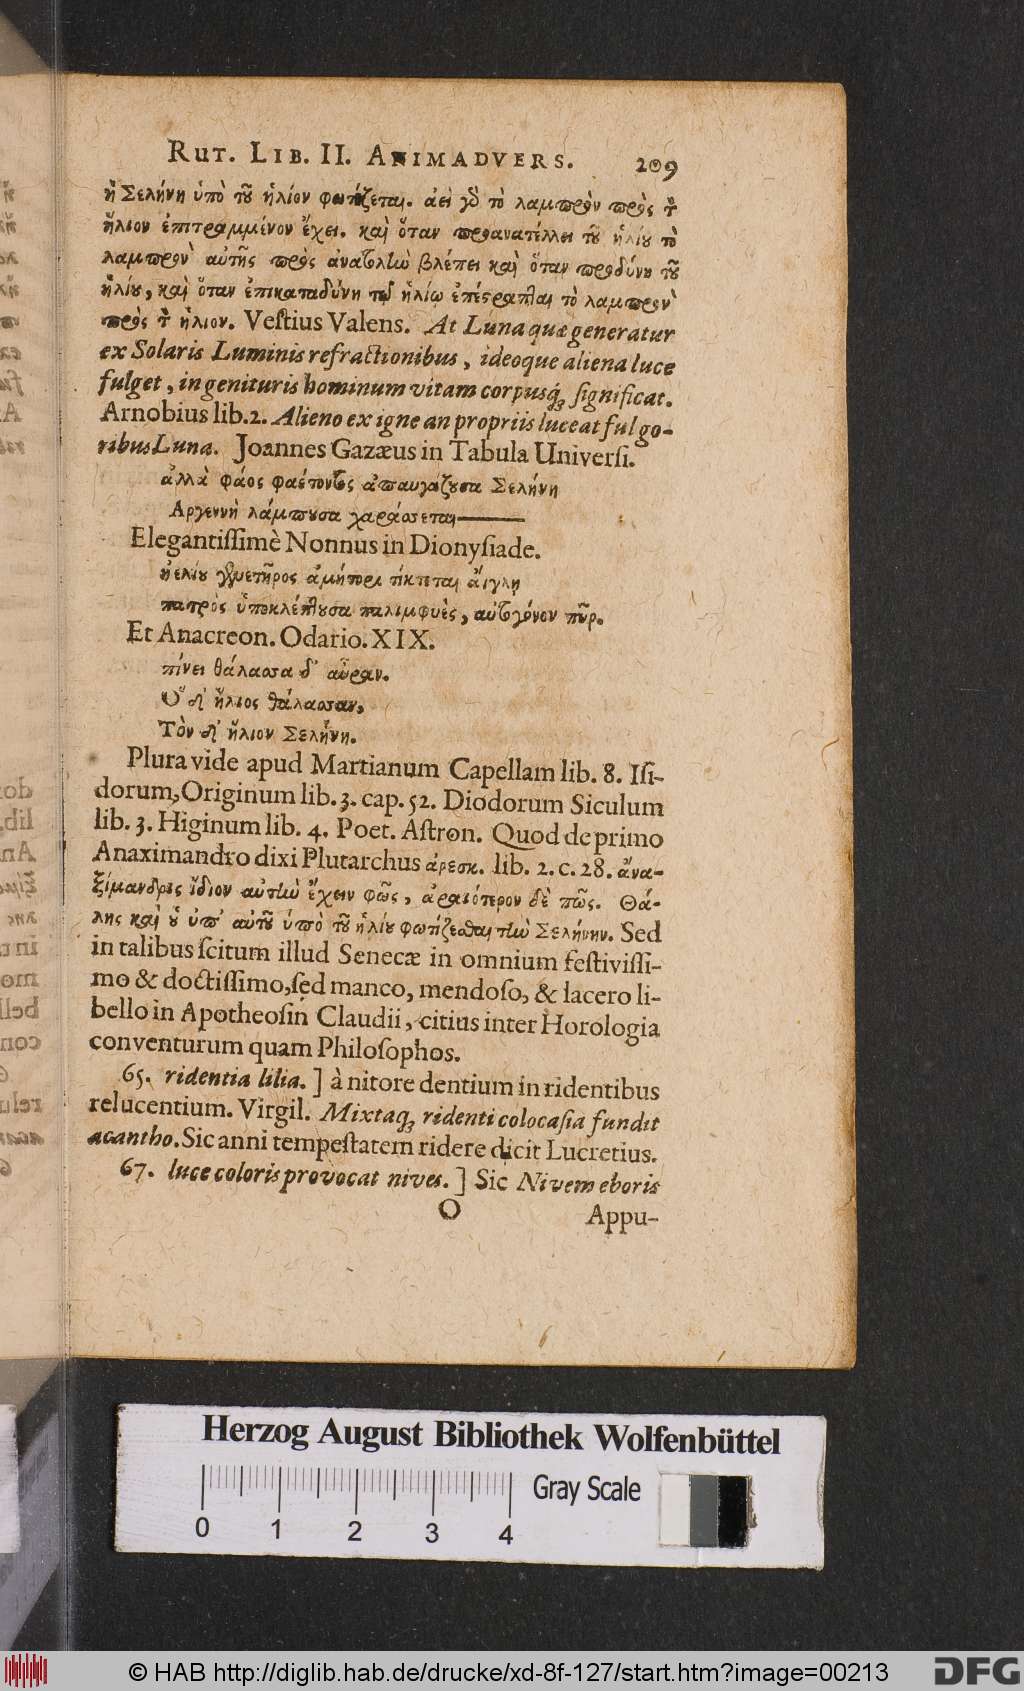 RUT. LIB. II. ANIMADVERS. 209
ἡ Σελήνη ὑπὸ τοῦ ἡλίου φωτίζεται. ἀεὶ γὸ τὸ λαμπρὸν πρὸς τ
ἥλιον ἐπιτραμμένον ἔχει. καὶ ὅταν προανατέλλει τοῦ ἡλίου τὸ
λαμπρὸν αὐτῆς πρὸς ἀνατολὴν βλέπει καὶ ὅταν προδύνη τοῦ
ἡλίου, καὶ ὅταν ἐπικαταδύνη τῷ ἡλίῳ ἐπέστραπται τὸ λαμπρὸν
πρὸς τ ἥλιον. Veſtius Valens. At Luna quæ generatur
ex Solaris Luminis refractionibus, ideoque aliena luce
fulget, in genituris hominum vitam corpusq́ ſignificat.
Arnobius lib.2. Alieno ex igne an propriis luceat fulgo-
ribus Luna. Joannes Gazæus in Tabula Univerſi.
ἀλλὰ φάος φαέτοντος ἀπαυγάζουσα Σελήνη
Αργεννὴ λάμπουσα χαράσσεται———
Elegantiſſimè Nonnus in Dionyſiade.
ἠελίου γενετῆρος ἀμήτορι τίκτεται αἴγλῃ
πατρὸς ὑποκλέπτουσα παλιμφυὲς, αὐτογόνον πῦρ.
Et Anacreon. Odario. XIX.
πίνει θάλασσα δ' αὔραν.
Ὁ δ' ἥλιος θάλασσαν,
Τὸν δ' ἥλιον Σελήνη.
Plura vide apud Martianum Capellam lib. 8. Iſi-
dorum, Originum lib. 3. cap. 52. Diodorum Siculum
lib. 3. Higinum lib. 4. Poet. Aſtron. Quod de primo
Anaximandro dixi Plutarchus ἀρεσκ. lib. 2. c. 28. ἀνα-
ξίμανδρος ἴδιον αὐτὴν ἔχειν φῶς, ἀραιότερον δὲ πῶς. Θά-
λης καὶ οἱ ὑπ' αὐτοῦ ὑπὸ τοῦ ἡλίου φωτίζεσθαι τὴν Σελήνην. Sed
in talibus ſcitum illud Senecæ in omnium feſtiviſſi-
mo & doctiſſimo, ſed manco, mendoſo, & lacero li-
bello in Apotheoſin Claudii, citius inter Horologia
conventurum quam Philoſophos.
65. ridentia lilia.] à nitore dentium in ridentibus
relucentium. Virgil. Mixtaq́ ridenti colocaſia fundit
acantho. Sic anni tempeſtatem ridere dicit Lucretius.
67. luce coloris provocat nives.] Sic Nivem eboris
O Appu-
Herzog August Bibliothek Wolfenbüttel
Gray Scale
0 1 2 3 4
© HAB http://diglib.hab.de/drucke/xd-8f-127/start.htm?image=00213
DFG